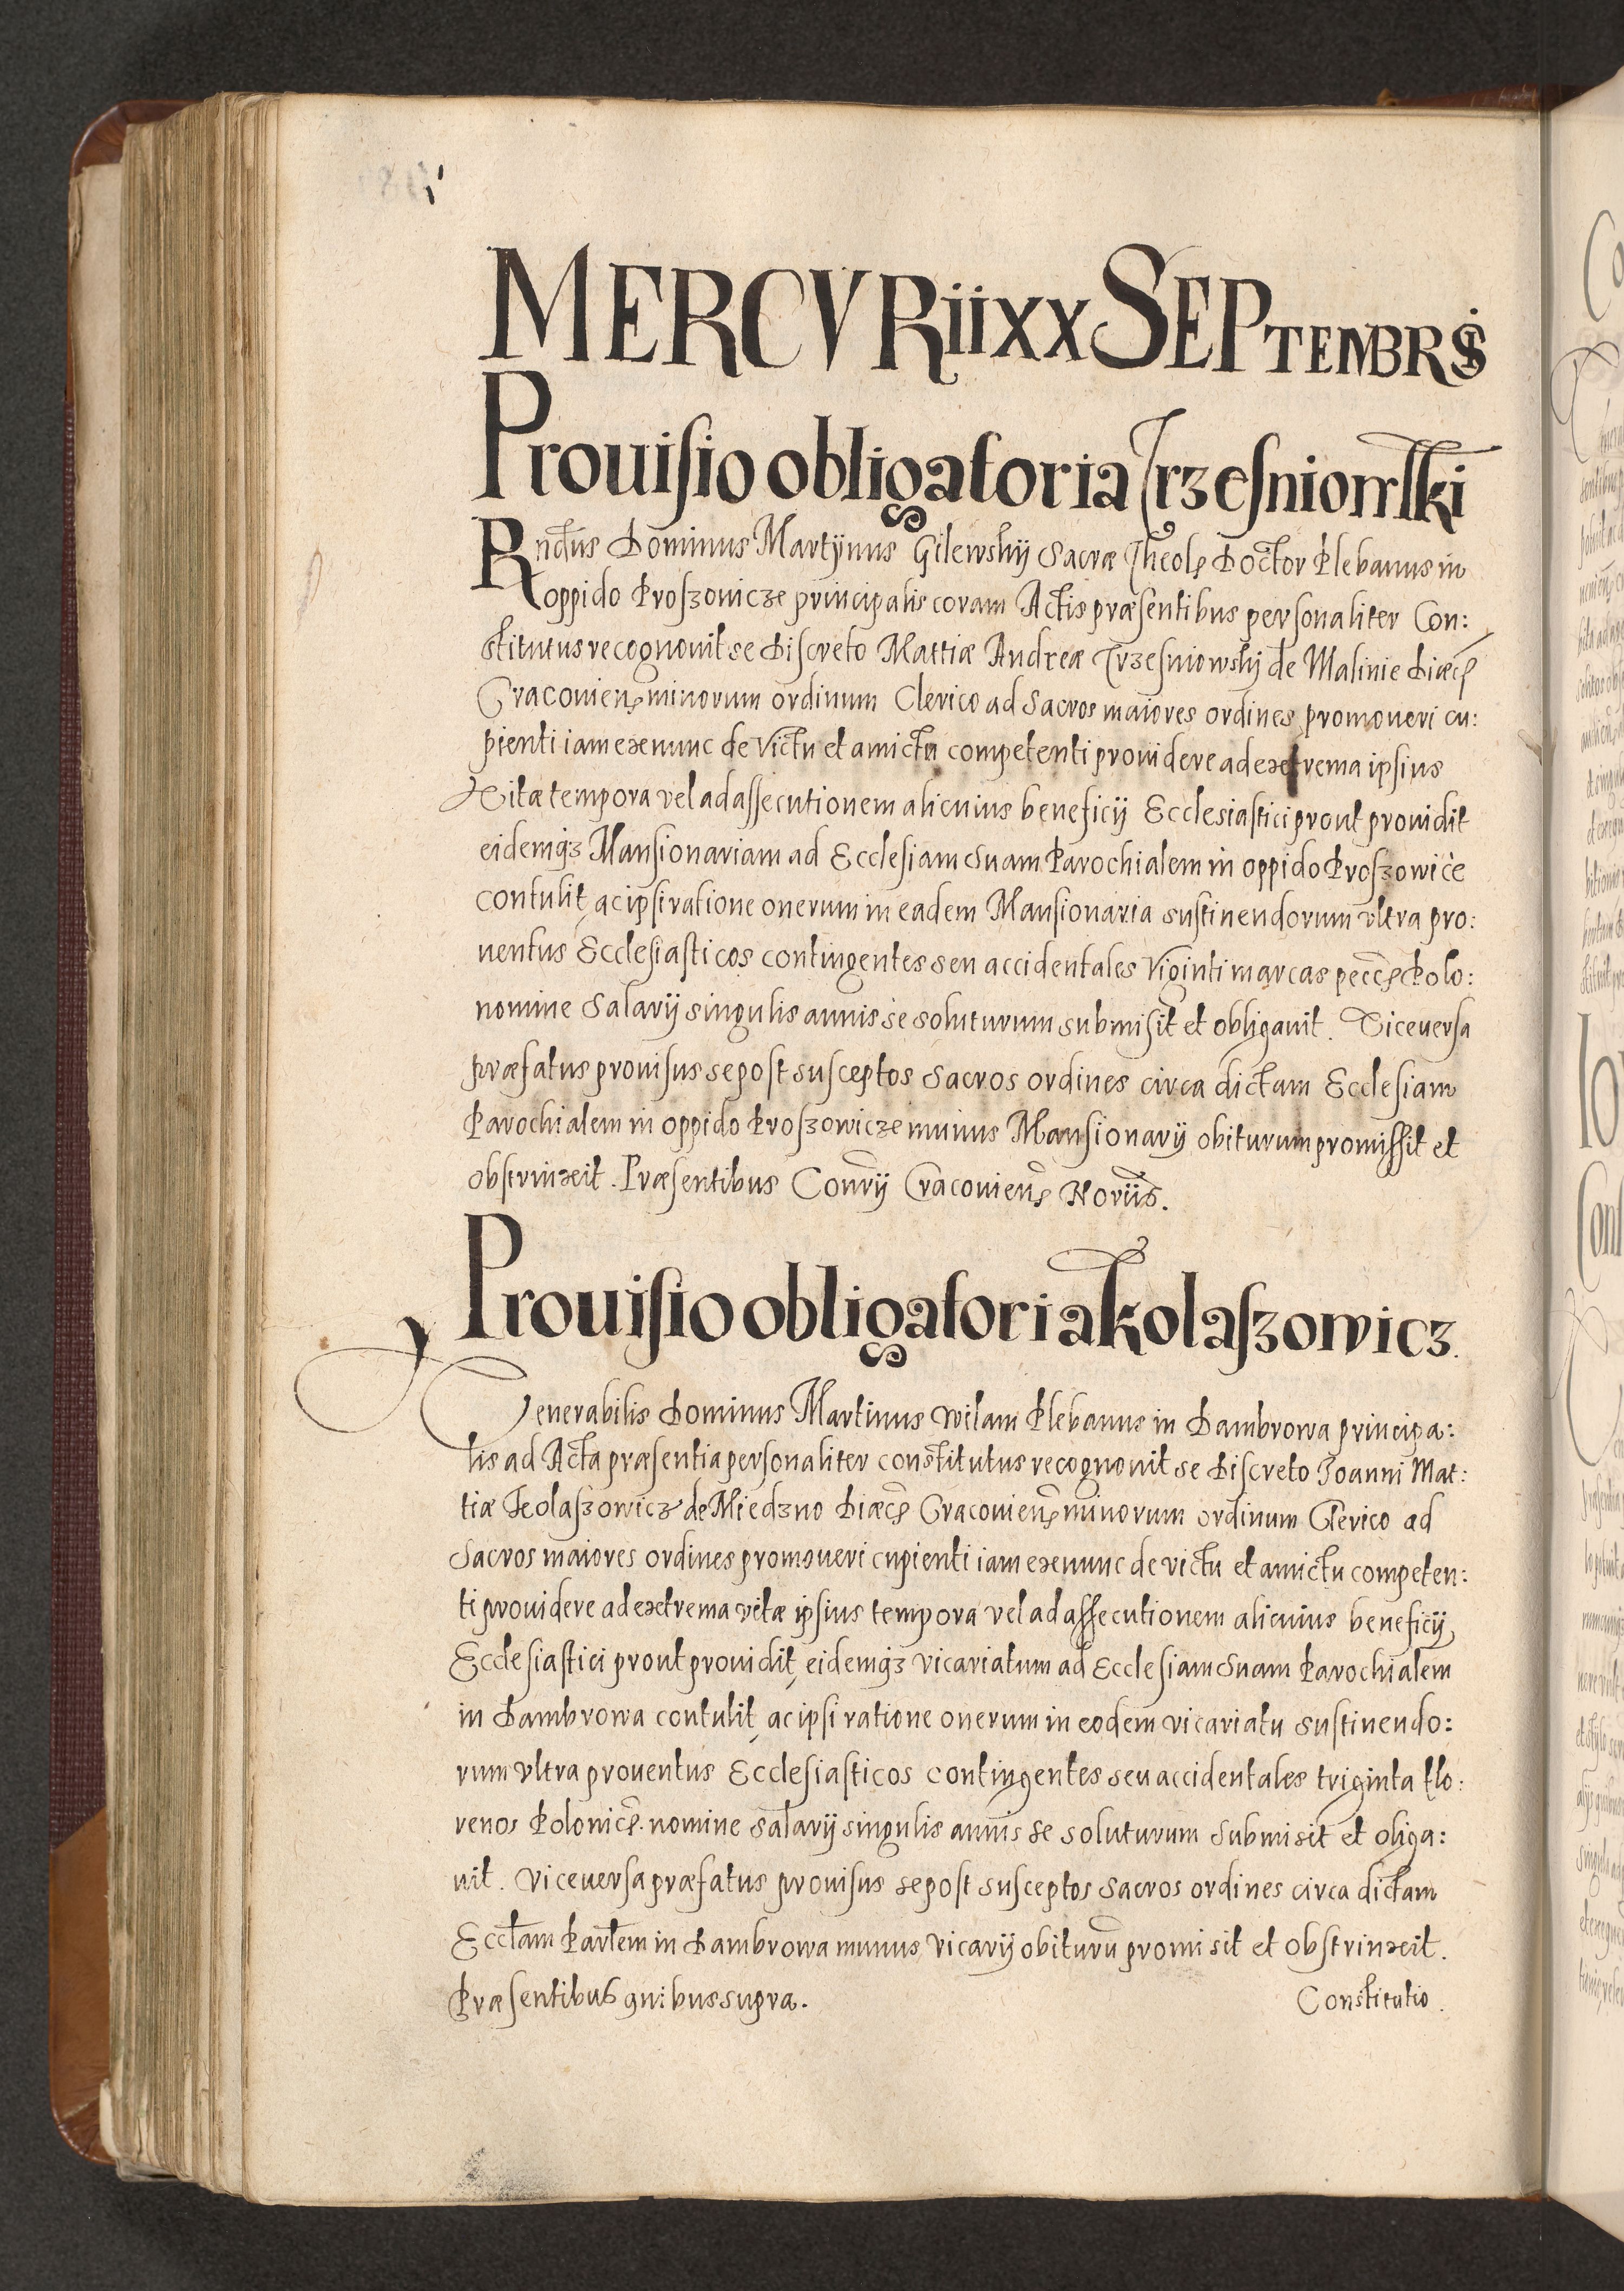 MERCVRii xx SEPTEMBRis
Prouisio obligatoria Trzesniowski
Rndus Dominus Martynus Gilewskij Sacræ Theolę Doctor Plebanus in
oppido Proszowicze principalis coram Actis præsentibus personaliter Con:
stitutus recognouit se Discreto Mattiæ Andreæ Trzesniowskj de Malinie Diæcę
Cracouienę minorum ordinum Clerico ad Sacros maiores ordines promoueri cu:
pienti iam exnunc de Victu et amictu competenti prouidere ad extrema ipsius
Vitæ tempora vel ad assecutionem alicuius beneficij Ecclesiastici prout prouidit
eidemq3 Mansionariam ad Ecclesiam Suam Parochialem in oppido Proszowice
contulit, ac ipsi ratione onerum in eadem Mansionaria sustinendorum vltra pro:
uentus Ecclesiasticos contingentes seu accidentales Viginti marcas peccę Polo:
nomine Salarij singulis annis se soluturum submisit et obligauit. Viceuersa
præfatus prouisus se post susceptos Sacros ordines circa dictam Ecclesiam
Parochialem in oppido Proszowicze munus Mansionarij obiturum promissit et
obstrinxit. Præsentibus Conrij Cracouienę Noriis.
Prouisio obligatoria Kolaszowicz.
Venerabilis Dominus Martinus Wilam Plebanus in Dambrowa principa:
lis ad Acta præsentia personaliter constitutus recognouit se Discreto Joanni Mat:
tiæ Kolaszowicz de Miedzno Diæcę Cracouienę minorum ordinum Clerico ad
Sacros maiores ordines promoueri cupienti iam exnunc de victu et amictu competen:
ti prouidere ad extrema vitæ ipsius tempora vel ad assecutionem alicuius beneficij,
Ecclesiastici prout prouidit, eidemq3 vicariatum ad Ecclesiam Suam Parochialem
in Dambrowa contulit, ac ipsi ratione onerum in eodem vicariatu sustinendo:
rum vltra prouentus Ecclesiasticos contingentes seu accidentales triginta flo:
renos Polonicę. nomine Salarij singulis annis se soluturum submisit et oliga:
uit. Viceuersa præfatus prouisus se post susceptos Sacros ordines circa dictam
Ecclam Parlem in Dambrowa munus Vicarij obiturū promisit et obstrinxit.
Præsentibus quibus supra.
Constitutio.